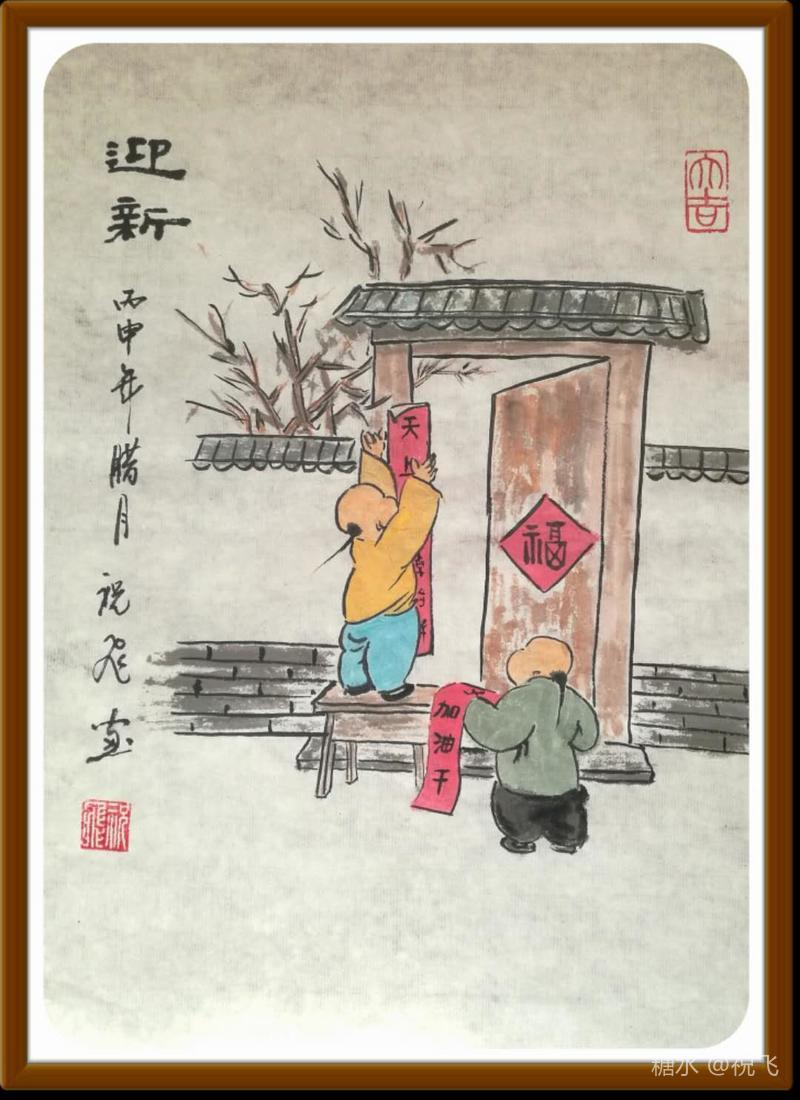 迎新
丙申年腊月 祝飞画
祝飞
大吉
天
福
加油干
糖水 @祝飞